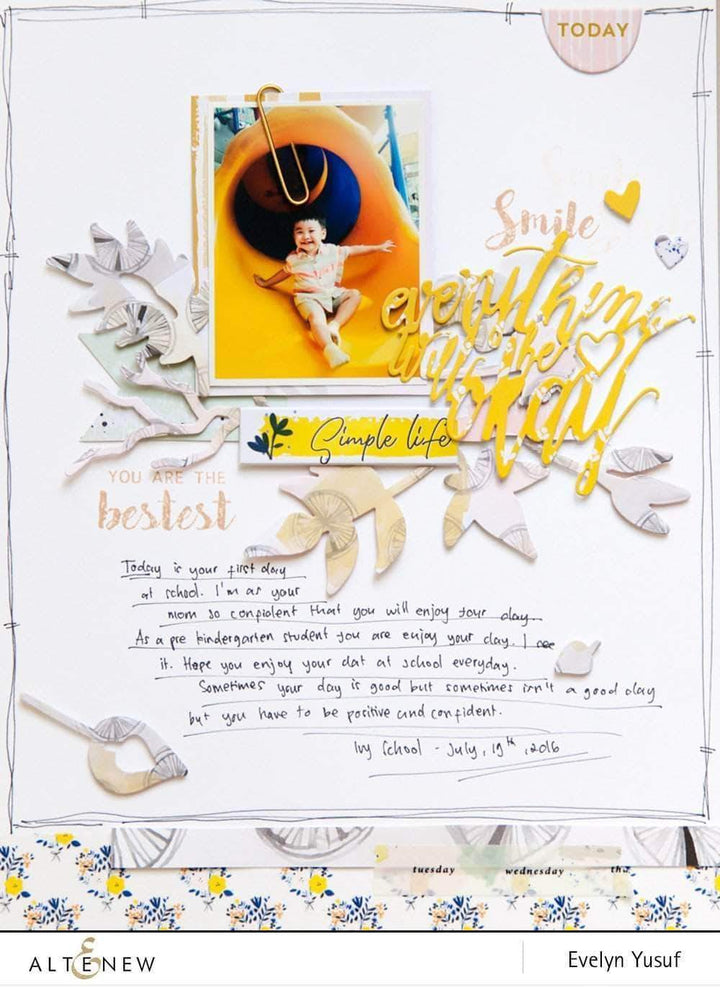 TODAY
Smile
everything
the
okay
Simple life
YOU ARE THE
bestest
Today is your first day
at school. I'm as your
mom so conpident that you will enjoy your day.
As a pre kindergarten student you are enjoy your day. I see
it. Hope you enjoy your dat at school everyday.
Sometimes your day is good but sometimes isn't a good day
but you have to be positive and confident.
Ivy School - July, 19th, 2016
tuesday wednesday
ALTENEW
Evelyn Yusuf